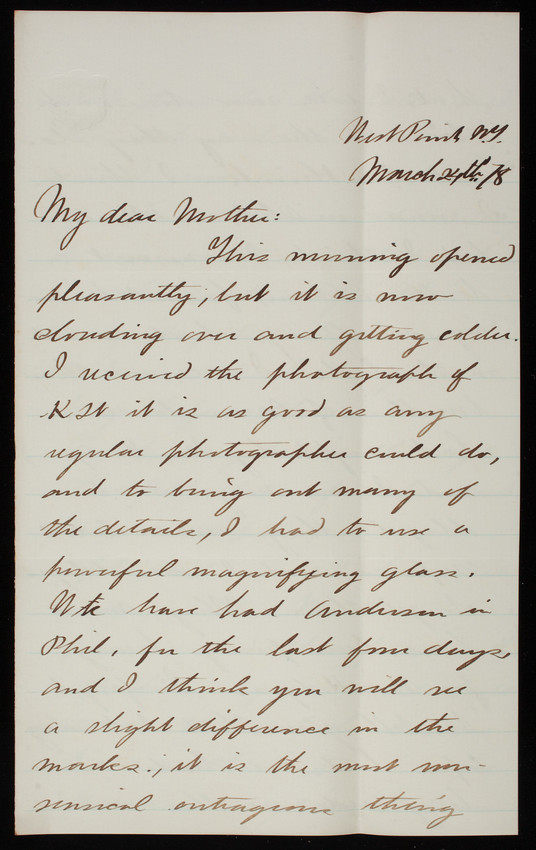 West Point N.Y.
March 24th /78
My dear Mother:
This morning opened
pleasantly, but it is now
clouding over and getting colder.
I received the photograph of
K St it is as good as any
regular photographer could do,
and to bring out many of
the details, I had to use a
powerful magnifying glass.
We have had Anderson in
Phil. for the last four days,
and I think you will see
a slight difference in the
marks; it is the most non-
sensical outrageous thing